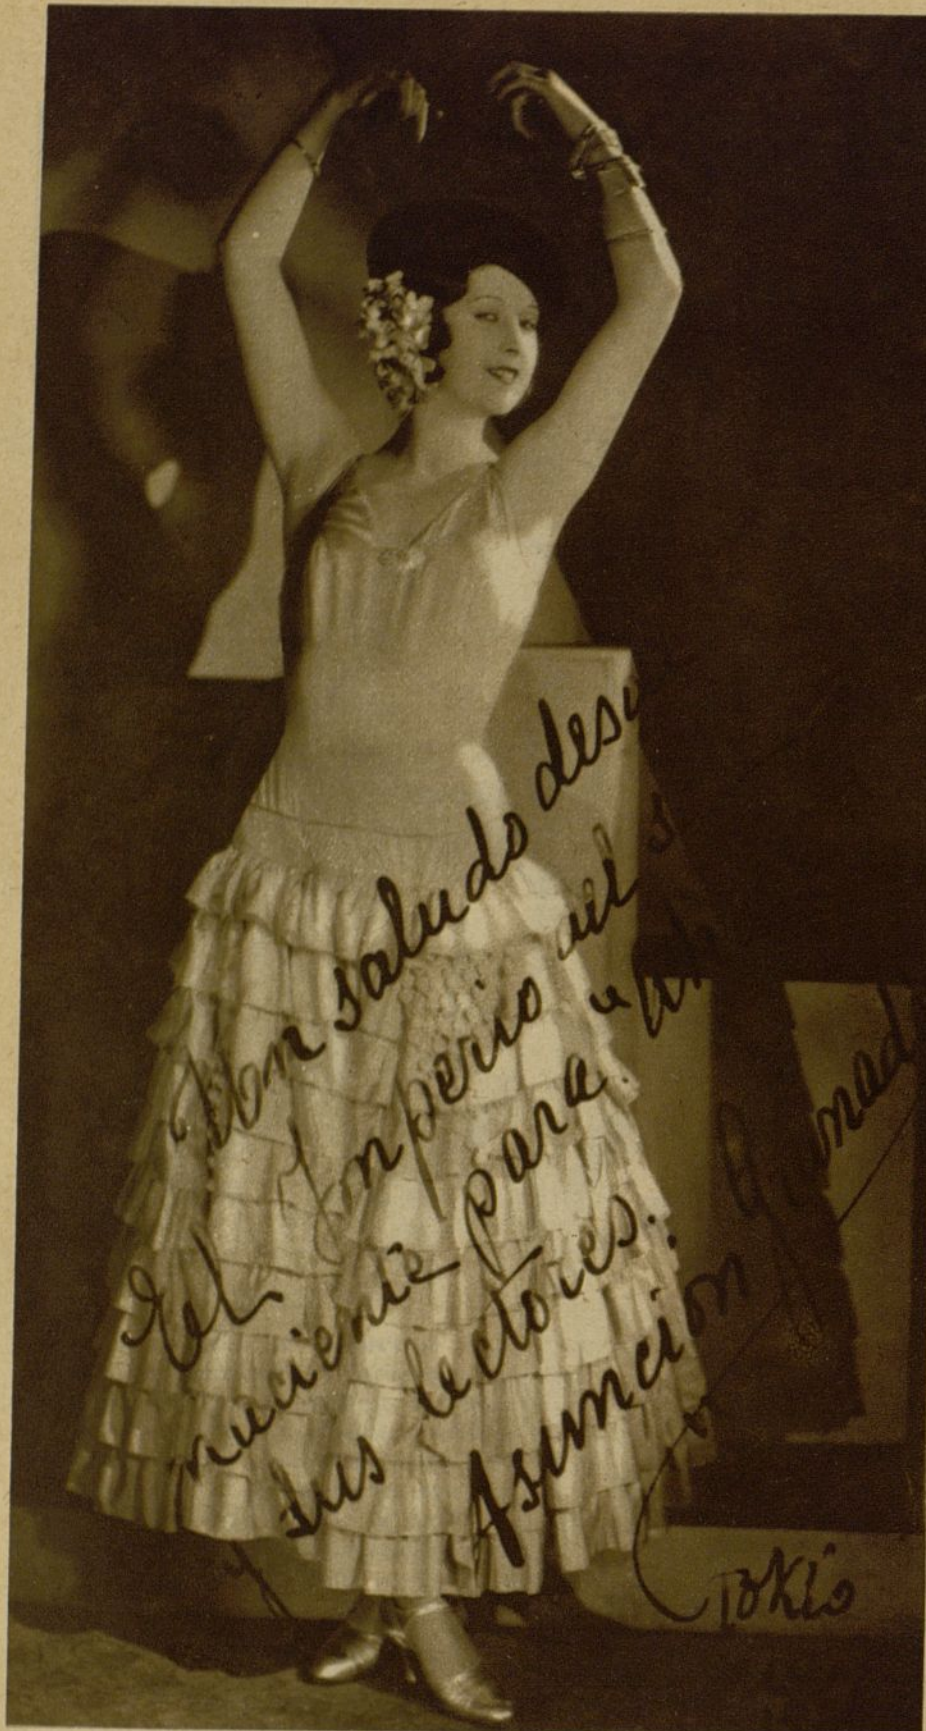 Con saludo des
El Imperio del s
naciente para
y sus lectores:
Asunción Granad
Tokio